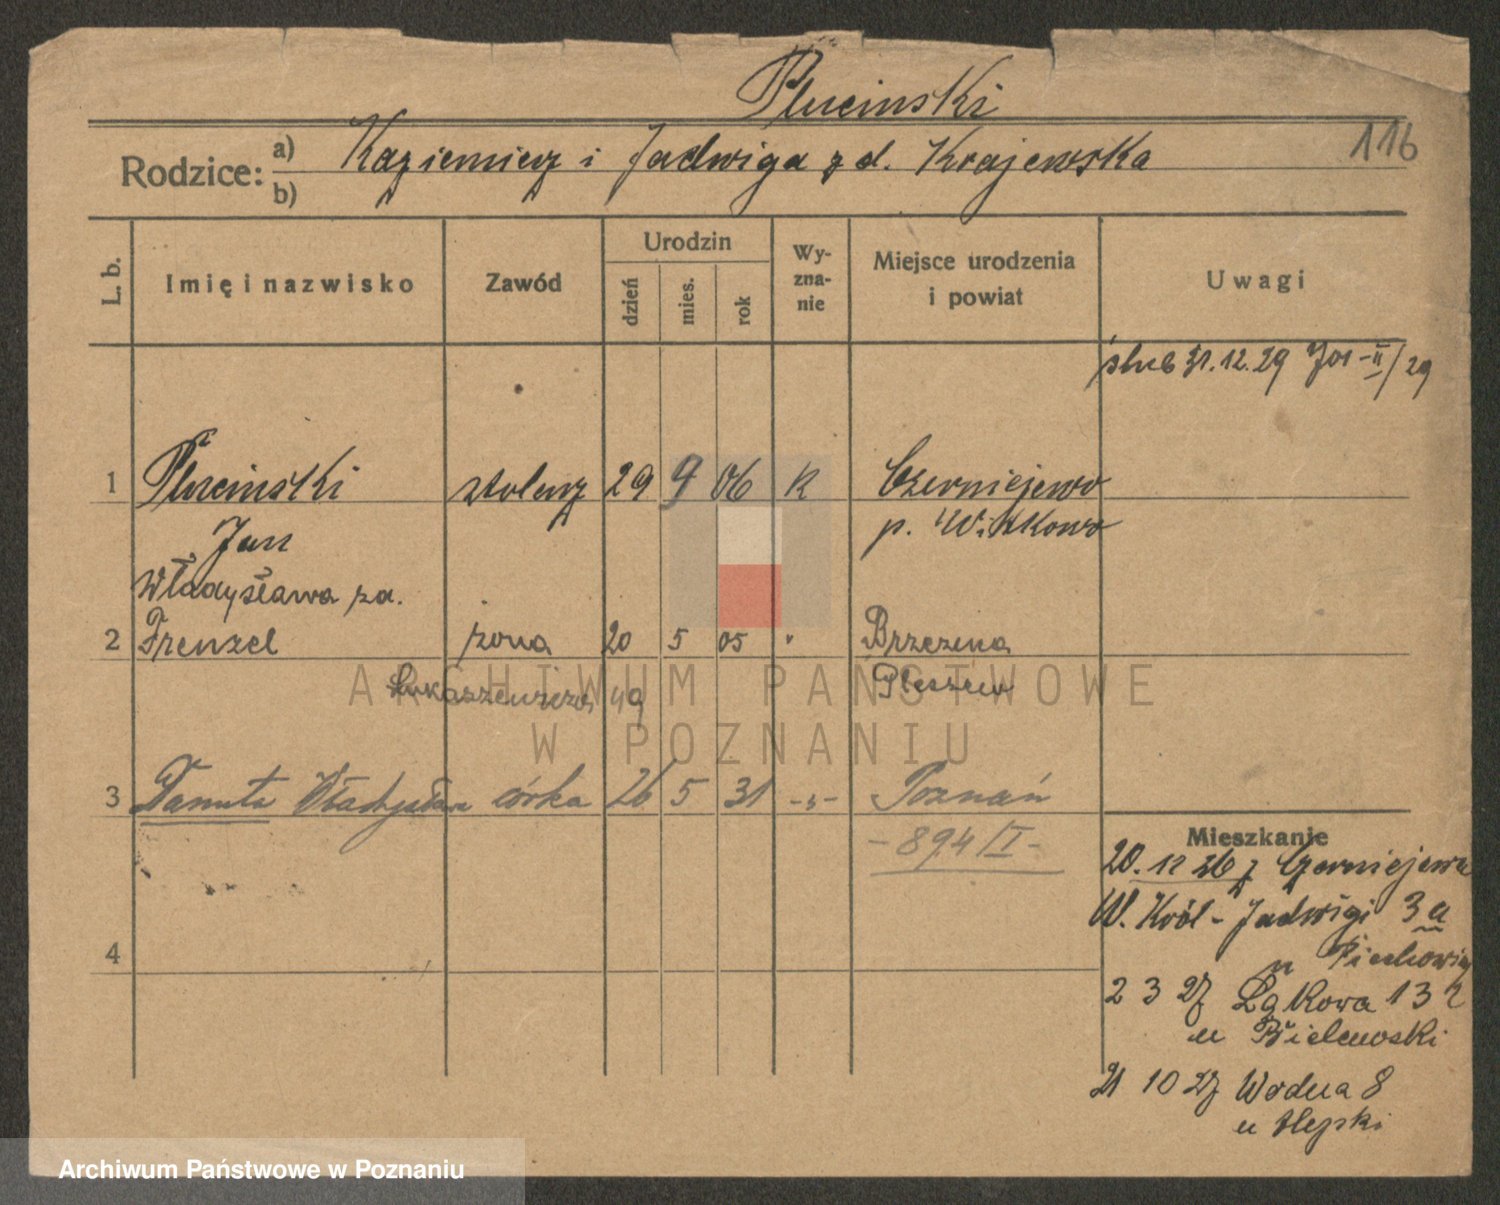 Plucinski
116
Rodzice: a) Kazimierz i Jadwiga z d. Krajewska
b)
L. b.
Imię i nazwisko
Zawód
Urodzin
dzień
mies.
rok
Wy-
zna-
nie
Miejsce urodzenia
i powiat
Uwagi
ślub 31.12.29 II/29
1 Pluciński stolarz 29 9 06 K Czerniejewo
Jan p. Witkowo
Władysława zd.
2 Frenzel żona 20 5 05 " Brzezina
Pleszew
3 Danuta Władysława córka 26 5 31 -"- Poznań
- 894/I -
4
Mieszkanie
20. 12 26 z Czerniejewa
W. Król-Jadwigi 3a
u Piechowiak
2 3 27 Łąkowa 13
u Bielewski
21 10 27 Wodna 8
u
ARCHIWUM PAŃSTWOWE
W POZNANIU
Archiwum Państwowe w Poznaniu